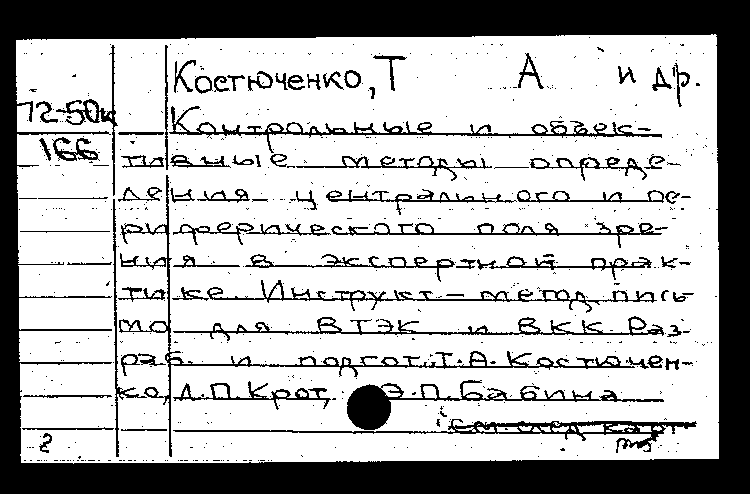 Костюченко, Т А и др.
72-50к
Контрольные и объек-
166
тивные методы опреде-
ления центрального и пе-
риферического поля зре-
ния в экспертной прак-
тике Инструкт-метод. пись
мо для ВТЭК и ВКК Раз-
раб. и подгот. Т.А. Костючен-
ко, Л.П. Крот, Э.П. Бабина
см. след карт
2